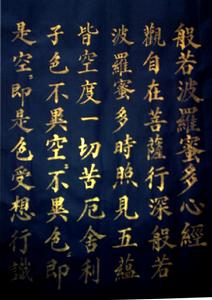 般若波羅蜜多心經
觀自在菩薩行深般若
波羅蜜多時照見五蘊
皆空度一切苦厄舍利
子色不異空〻不異色〻即
是空〻即是色受想行識